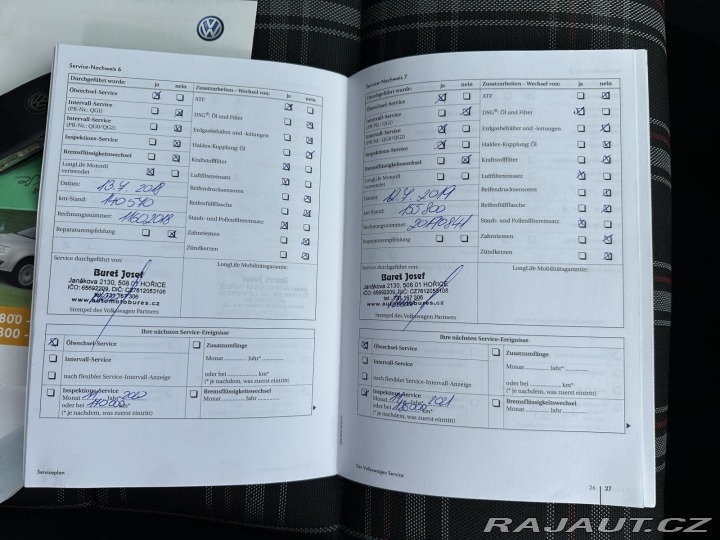 Service-Nachweis 6
Durchgeführt wurde: ja nein
Ölwechsel-Service
Intervall-Service
(PR-Nr.: QG1)
Intervall-Service
(PR-Nr.: QG0/QG2)
Inspektions-Service
Bremsflüssigkeitswechsel
LongLife Motoröl
verwendet
Datum: 13.4.2018
km-Stand: 140 540
Rechnungsnummer: 11602018
Reparaturempfehlung
Zusatzarbeiten – Wechsel von: ja nein
ATF
DSG®: Öl und Filter
Erdgasbehälter und -leitungen
Haldex-Kupplung: Öl
Kraftstofffilter
Luftfiltereinsatz
Reifendrucksensoren
Reifenfüllflasche
Staub- und Pollenfiltereinsatz
Zahnriemen
Zündkerzen
Service durchgeführt von:
LongLife Mobilitätsgarantie:
Bureš Josef
Janákova 2130, 508 01 HOŘICE
IČO: 65692209, DIČ: CZ7612053108
tel.: 731 167 306
www.automotobures.cz
Stempel des Volkswagen Partners
Ihre nächsten Service-Ereignisse
Ölwechsel-Service
Intervall-Service
nach flexibler Service-Intervall-Anzeige
Zusatzumfänge
Monat ............ Jahr*............
oder bei ............ km*
(* je nachdem, was zuerst eintritt)
Inspektions-Service
Monat Jahr*
oder bei
(* je nachdem, was zuerst eintritt)
Bremsflüssigkeitswechsel
Monat ............ Jahr............
Serviceplan
Service-Nachweis 7
Durchgeführt wurde: ja nein
Ölwechsel-Service
Intervall-Service
(PR-Nr.: QG1)
Intervall-Service
(PR-Nr.: QG0/QG2)
Inspektions-Service
Bremsflüssigkeitswechsel
LongLife Motoröl
verwendet
Datum: 12.4.2019
km-Stand: 155 800
Rechnungsnummer:
Reparaturempfehlung
Zusatzarbeiten – Wechsel von: ja nein
ATF
DSG®: Öl und Filter
Erdgasbehälter und -leitungen
Haldex-Kupplung: Öl
Kraftstofffilter
Luftfiltereinsatz
Reifendrucksensoren
Reifenfüllflasche
Staub- und Pollenfiltereinsatz
Zahnriemen
Zündkerzen
Service durchgeführt von:
LongLife Mobilitätsgarantie:
Bureš Josef
Janákova 2130, 508 01 HOŘICE
IČO: 65692209, DIČ: CZ7612053108
tel.: 731 167 306
www.automotobures.cz
Stempel des Volkswagen Partners
Ihre nächsten Service-Ereignisse
Ölwechsel-Service
Intervall-Service
nach flexibler Service-Intervall-Anzeige
Zusatzumfänge
Monat ............ Jahr*............
oder bei ............ km*
(* je nachdem, was zuerst eintritt)
Inspektions-Service
Monat Jahr* 2021
oder bei
(* je nachdem, was zuerst eintritt)
Bremsflüssigkeitswechsel
Monat ............ Jahr............
Für Volkswagen Service
26 | 27
800
800 -
RAJAUT.CZ